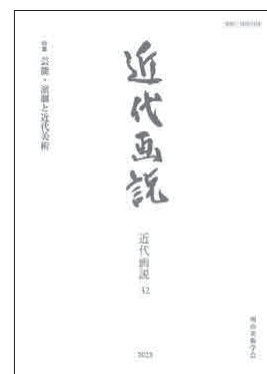 特集 芸能・演劇と近代美術
近代画説
近代画説
32
明治美術学会
2023